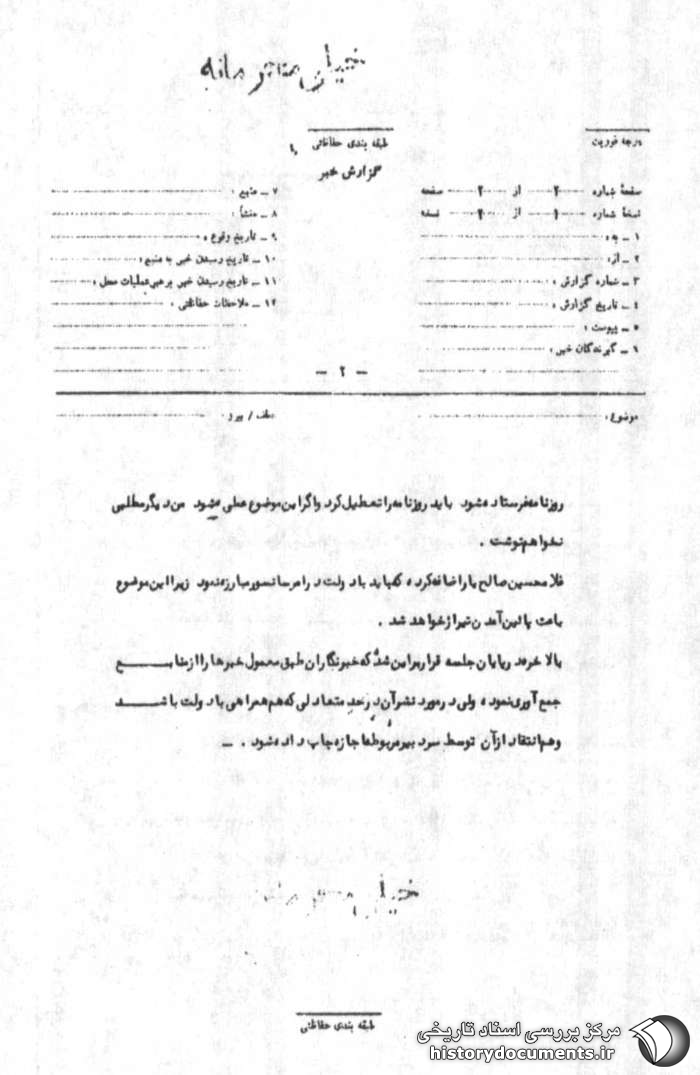 خیلی محرمانه
طبقه بندی حفاظتی
درجه فوریت
گزارش خبر
صفحهٔ شماره ۲ از ۲ صفحه
نسخهٔ شماره ۱ از ۲ نسخه
۱ ـ به :
۲ ـ از :
۳ ـ شماره گزارش :
٤ ـ تاریخ گزارش :
٥ ـ پیوست :
٦ ـ گیرندگان خبر :
۷ ـ منبع :
۸ ـ منشأ :
۹ ـ تاریخ وقوع :
۱۰ ـ تاریخ رسیدن خبر به منبع :
۱۱ ـ تاریخ رسیدن خبر برهبر عملیات محل :
۱۲ ـ ملاحظات حفاظتی :
ـ ۲ ـ
موضوع :
عطف / پیرو
روزنامه فرستاده شود باید روزنامه را تعطیل کرد و اگر این موضوع عملی شود من دیگر مطلبی
نخواهم نوشت .
غلامحسین صالحیار اضافه کرده که باید با دولت در امر سانسور مبارزه نمود زیرا این موضوع
باعث پائین آمدن تیراژ خواهد شد .
بالاخره در پایان جلسه قرار بر این شد که خبرنگاران طبق معمول خبرها را از منابع
جمع آوری نموده ولی در مورد نشر آن در حد متعادلی که هم همراهی با دولت باشد
و هم انتقاد از آن توسط سردبیر مربوطه اجازه چاپ داده شود . ـ
طبقه بندی حفاظتی
مرکز بررسی اسناد تاریخی
historydocuments.ir